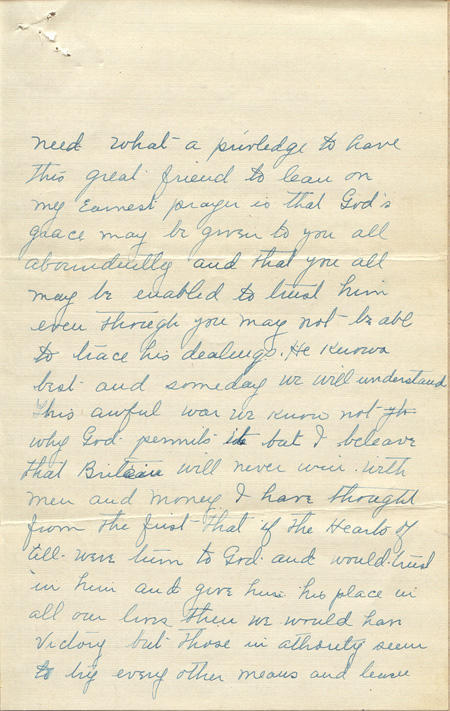 need what a priviledge to have
this great friend to lean on
my Earnest prayer is that God's
graace may be given to you all
abounduntly and that you all
may be enabled to trust him
even though you may not be abl
to trace his dealings. He knows
best and someday we will understand
This awful war we know not
why God permits it but I beleave
that Britain will never win with
men and money, I have thought
from the first that if the Hearts of
all were turn to God and would trust
in him and give him his place in
all our lives then we would have
Victory but those in athority seem
to try every other means and leave